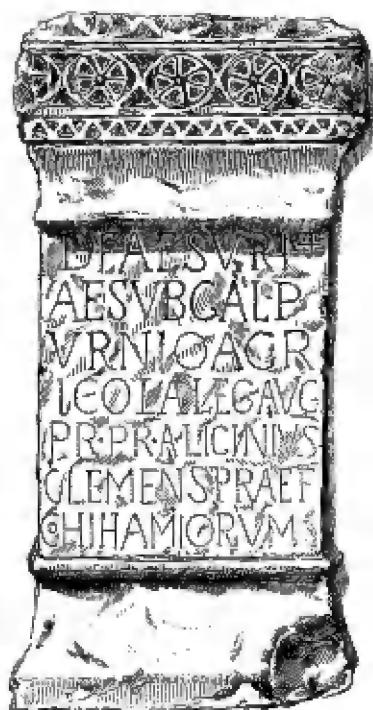 DEAESVRI
AESVBCALP
VRNIOAGR
ICOLALEGAVG
PR·PRALICINIVS
CLEMENSPRAEF
CHIHAMIORVM